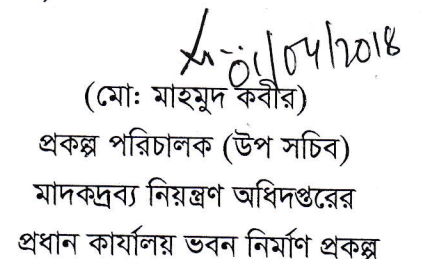 01/04/2018
(মো: মাহমুদ কবীর)
প্রকল্প পরিচালক (উপ সচিব)
মাদকদ্রব্য নিয়ন্ত্রণ অধিদপ্তরের
প্রধান কার্যালয় ভবন নির্মাণ প্রকল্প